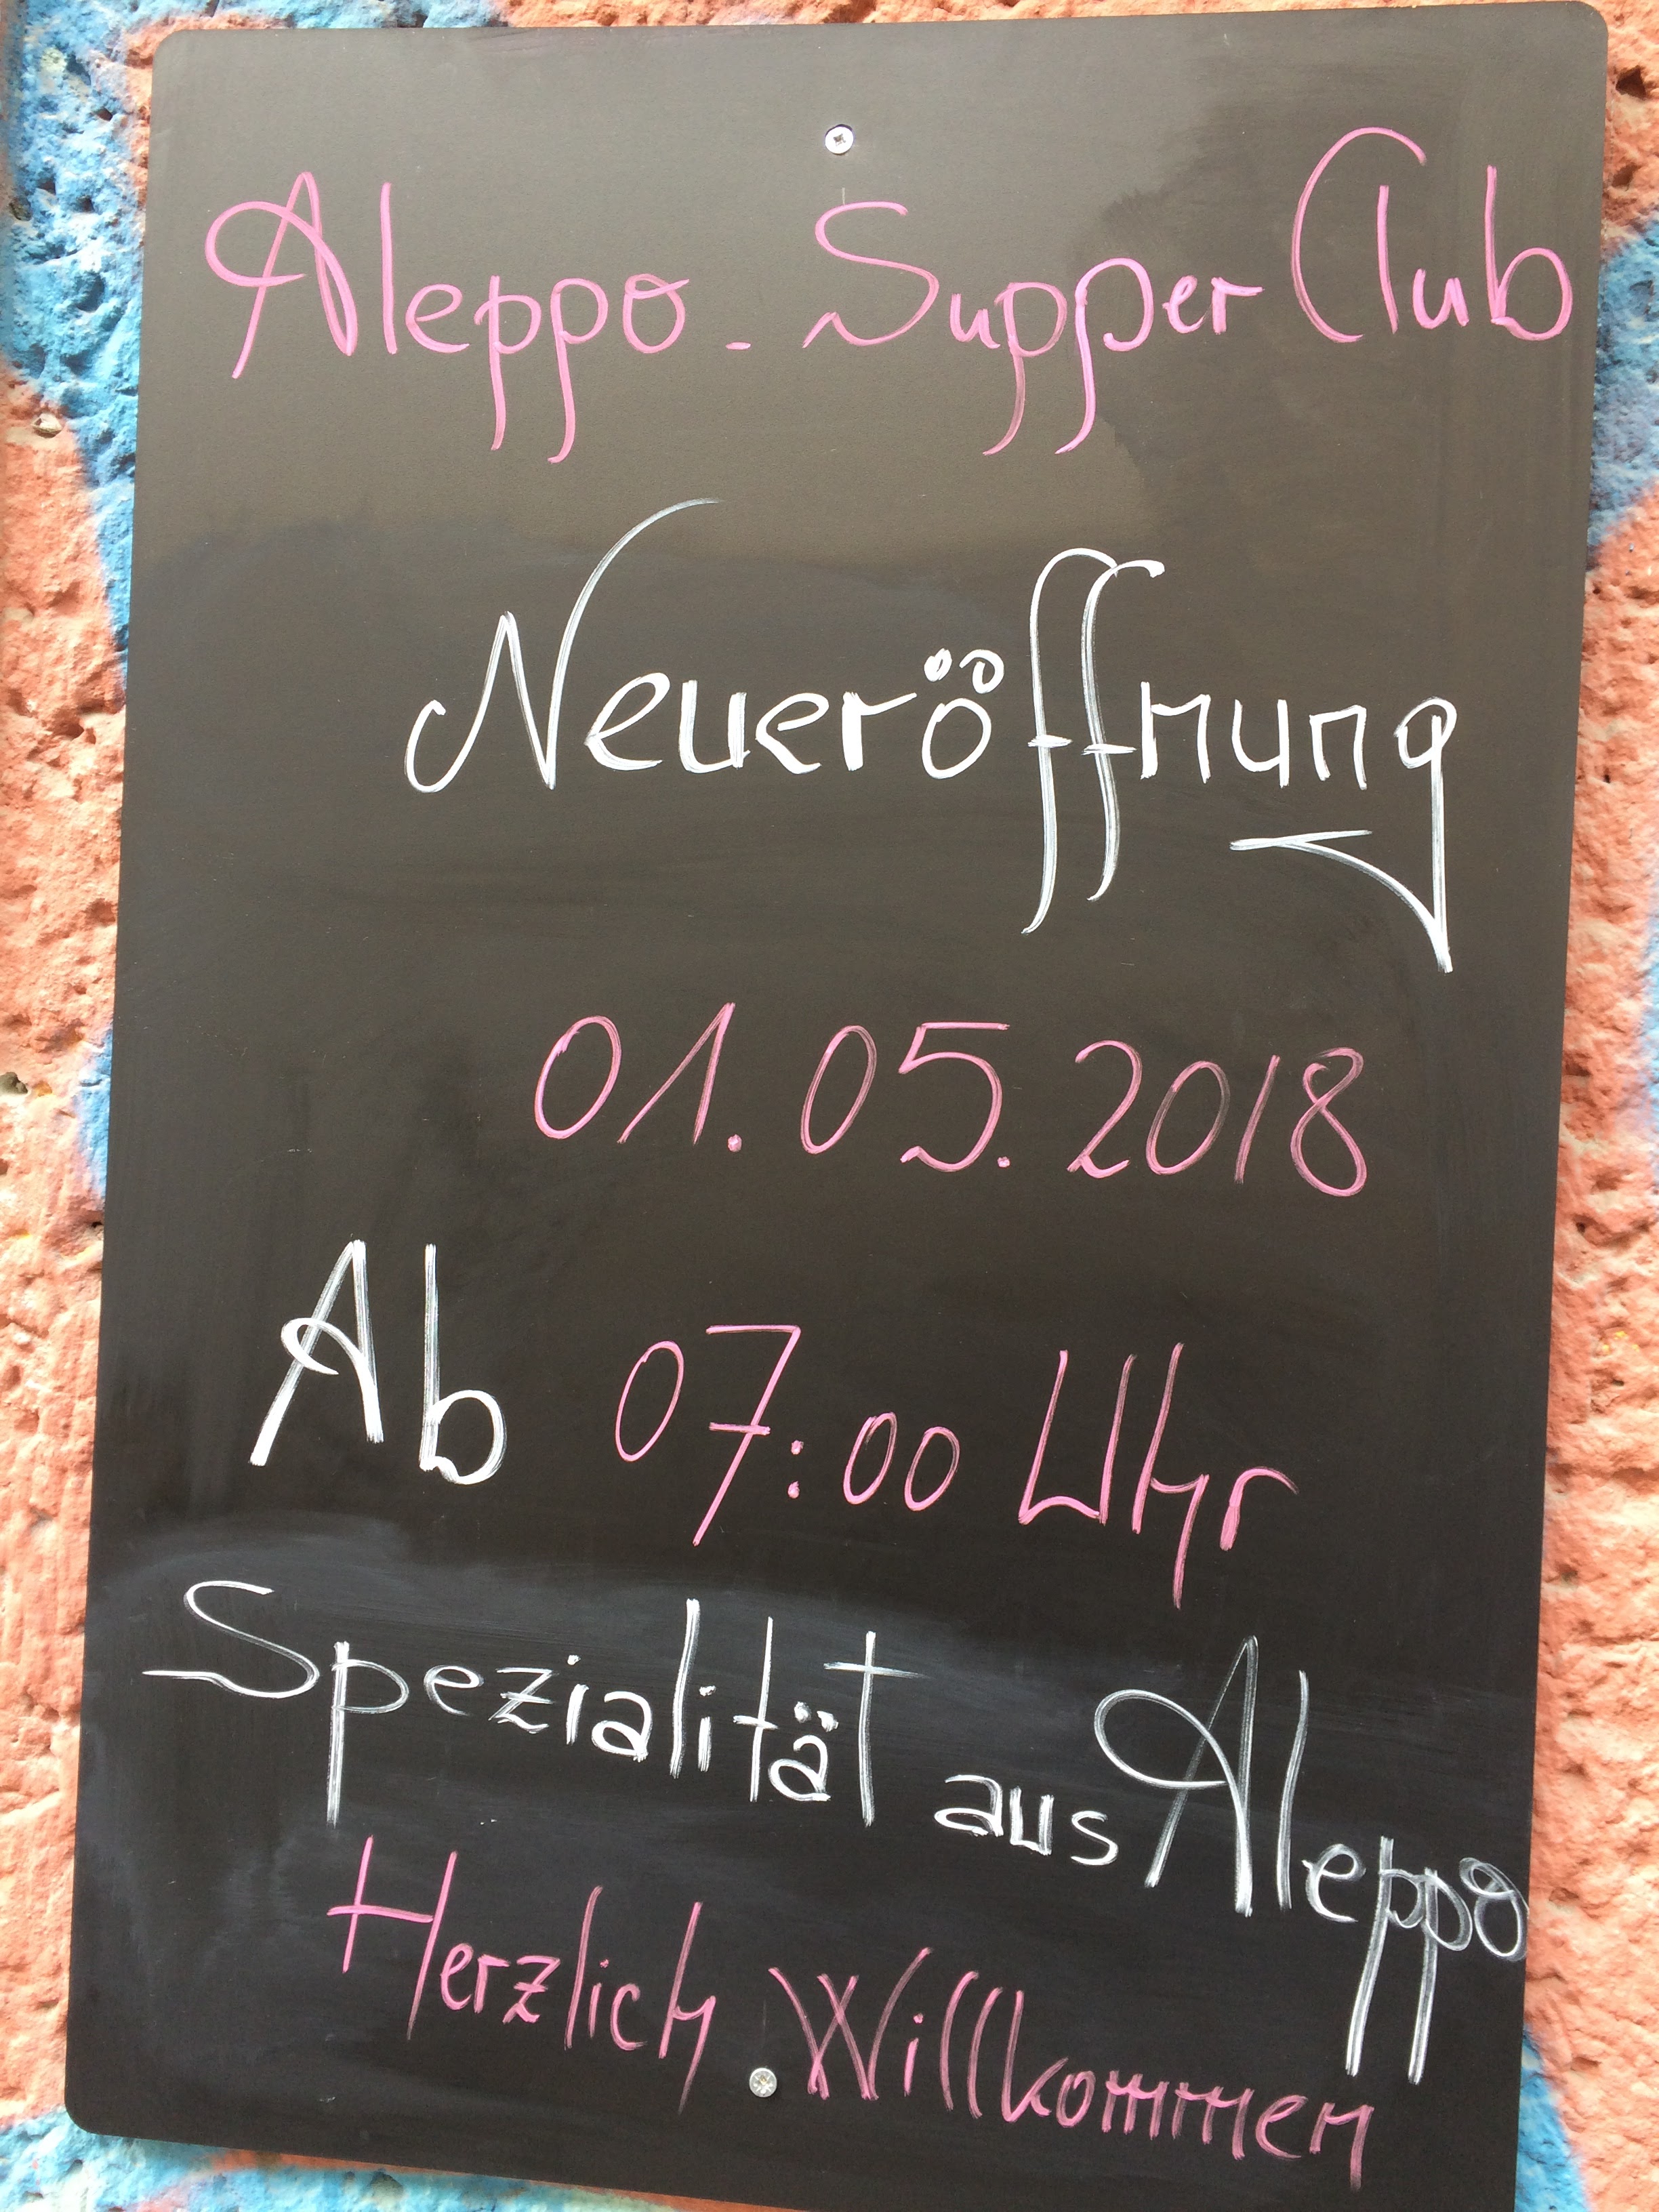 Aleppo - Supper Club
Neueröffnung
01.05.2018
Ab 07:00 Uhr
Spezialität aus Aleppo
Herzlich Willkommen